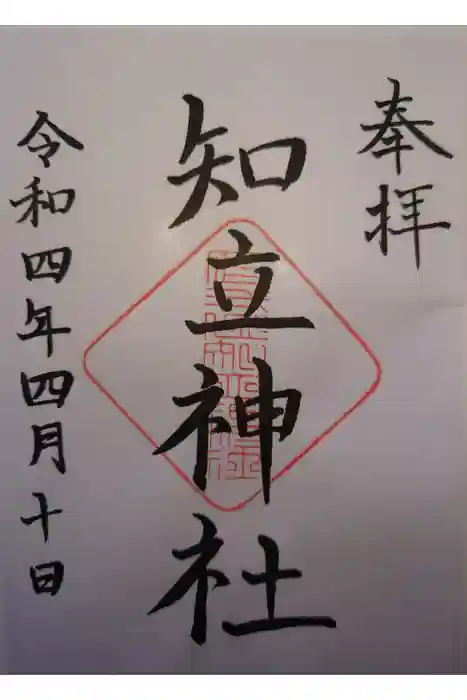 奉拝
知立神社
令和四年四月十日